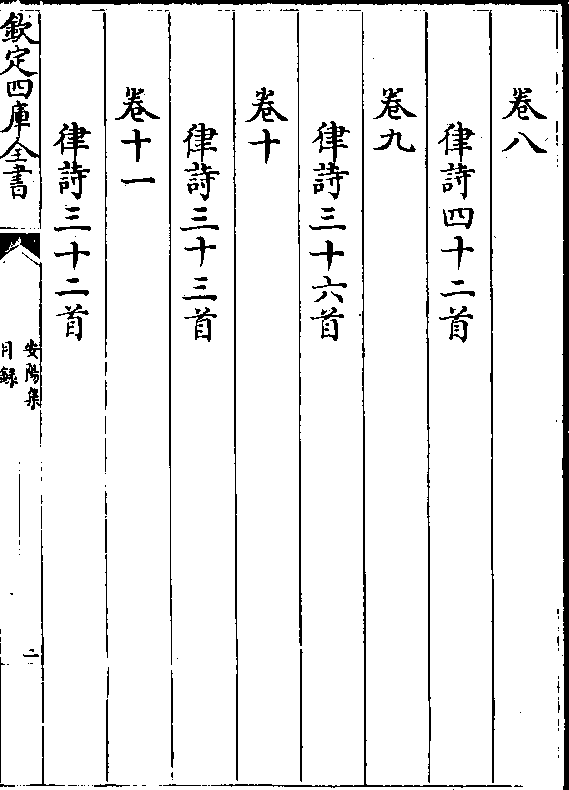 卷八
律詩四十二首
卷九
律詩三十六首
卷十
律詩三十三首
卷十一
律詩三十二首
欽定四庫全書
安陽集
目錄
二